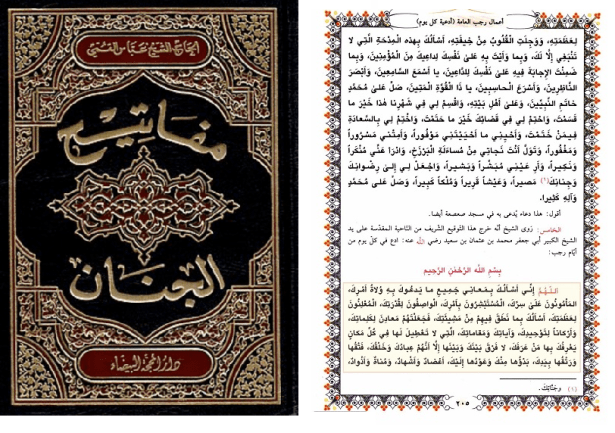 الحاج الشيخ عباس القمي
مفاتيح
الجنان
دار المحجة البيضاء
أعمال رجب العامة (أدعية كل يوم)
لِعَظَمَتِهِ، وَوَجِلَتِ الْقُلُوبُ مِنْ خِيفَتِهِ، أَسْأَلُكَ بِهذِهِ الْمِدْحَةِ الَّتِي لا
تَنْبَغِي إِلَّا لَكَ، وَبِما وَأَيْتَ بِهِ عَلَى نَفْسِكَ لِداعِيكَ مِنَ الْمُؤْمِنِينَ، وَبِما
ضَمِنْتَ الإِجابَةَ فِيهِ عَلَى نَفْسِكَ لِلدَّاعِينَ، يا أَسْمَعَ السَّامِعِينَ، وَأَبْصَرَ
النَّاظِرِينَ، وَأَسْرَعَ الْحاسِبِينَ، يا ذا الْقُوَّةِ الْمَتِينَ، صَلِّ عَلَى مُحَمَّدٍ
خاتَمِ النَّبِيِّينَ، وَعَلَى أَهْلِ بَيْتِهِ، وَاقْسِمْ لِي فِي شَهْرِنا هذا خَيْرَ ما
قَسَمْتَ، وَاحْتِمْ لِي فِي قَضائِكَ خَيْرَ ما حَتَمْتَ، وَاخْتِمْ لِي بِالسَّعادَةِ
فِيمَنْ خَتَمْتَ، وَأَحْيِنِي ما أَحْيَيْتَنِي مَوْفُوراً، وَأَمِتْنِي مَسْرُوراً
وَمَغْفُوراً، وَتَوَلَّ أَنْتَ نَجاتِي مِنْ مُساءَلَةِ الْبَرْزَخِ، وَادْرَأْ عَنِّي مُنْكَراً
وَنَكِيراً، وَأَرِ عَيْنِي مُبَشِّراً وَبَشِيراً، وَاجْعَلْ لِي إِلَى رِضْوانِكَ
وَجِنانِكَ(١) مَصِيراً، وَعَيْشاً قَرِيراً وَمُلْكاً كَبِيراً، وَصَلِّ عَلَى مُحَمَّدٍ
وَآلِهِ كَثِيراً.
أقول: هذا دعاء يُدعى به في مسجد صعصعة أيضا.
الخامس: رَوى الشيخ أنّه خرج هذا التوقيع الشريف من الناحية المقدّسة على يد
الشيخ الكبير أبي جعفر محمد بن عثمان بن سعيد رضي الله عنه: ادع في كلّ يوم من
أيّام رجب:
بِسْمِ اللَّهِ الرَّحْمَٰنِ الرَّحِيمِ
اللّهُمَّ إِنِّي أَسْأَلُكَ بِمَعانِي جَمِيعِ ما يَدْعُوكَ بِهِ وُلاةُ أَمْرِكَ،
الْمَأْمُونُونَ عَلَى سِرِّكَ، الْمُسْتَبْشِرُونَ بِأَمْرِكَ، الْواصِفُونَ لِقُدْرَتِكَ، الْمُعْلِنُونَ
لِعَظَمَتِكَ، أَسْأَلُكَ بِما نَطَقَ فِيهِمْ مِنْ مَشِيَّتِكَ، فَجَعَلْتَهُمْ مَعادِنَ لِكَلِماتِكَ،
وَأَرْكاناً لِتَوْحِيدِكَ، وَآياتِكَ وَمَقاماتِكَ، الَّتِي لا تَعْطِيلَ لَها فِي كُلِّ مَكانٍ
يَعْرِفُكَ بِها مَنْ عَرَفَكَ، لا فَرْقَ بَيْنَكَ وَبَيْنَها إِلَّا أَنَّهُمْ عِبادُكَ وَخَلْقُكَ، فَتْقُها
وَرَتْقُها بِيَدِكَ، بَدْؤُها مِنْكَ وَعَوْدُها إِلَيْكَ، أَعْضادٌ وَأَشْهادٌ، وَمُناةٌ وَأَذْوادٌ،
(١) وَجَنَّاتِكَ.
٢٠٥